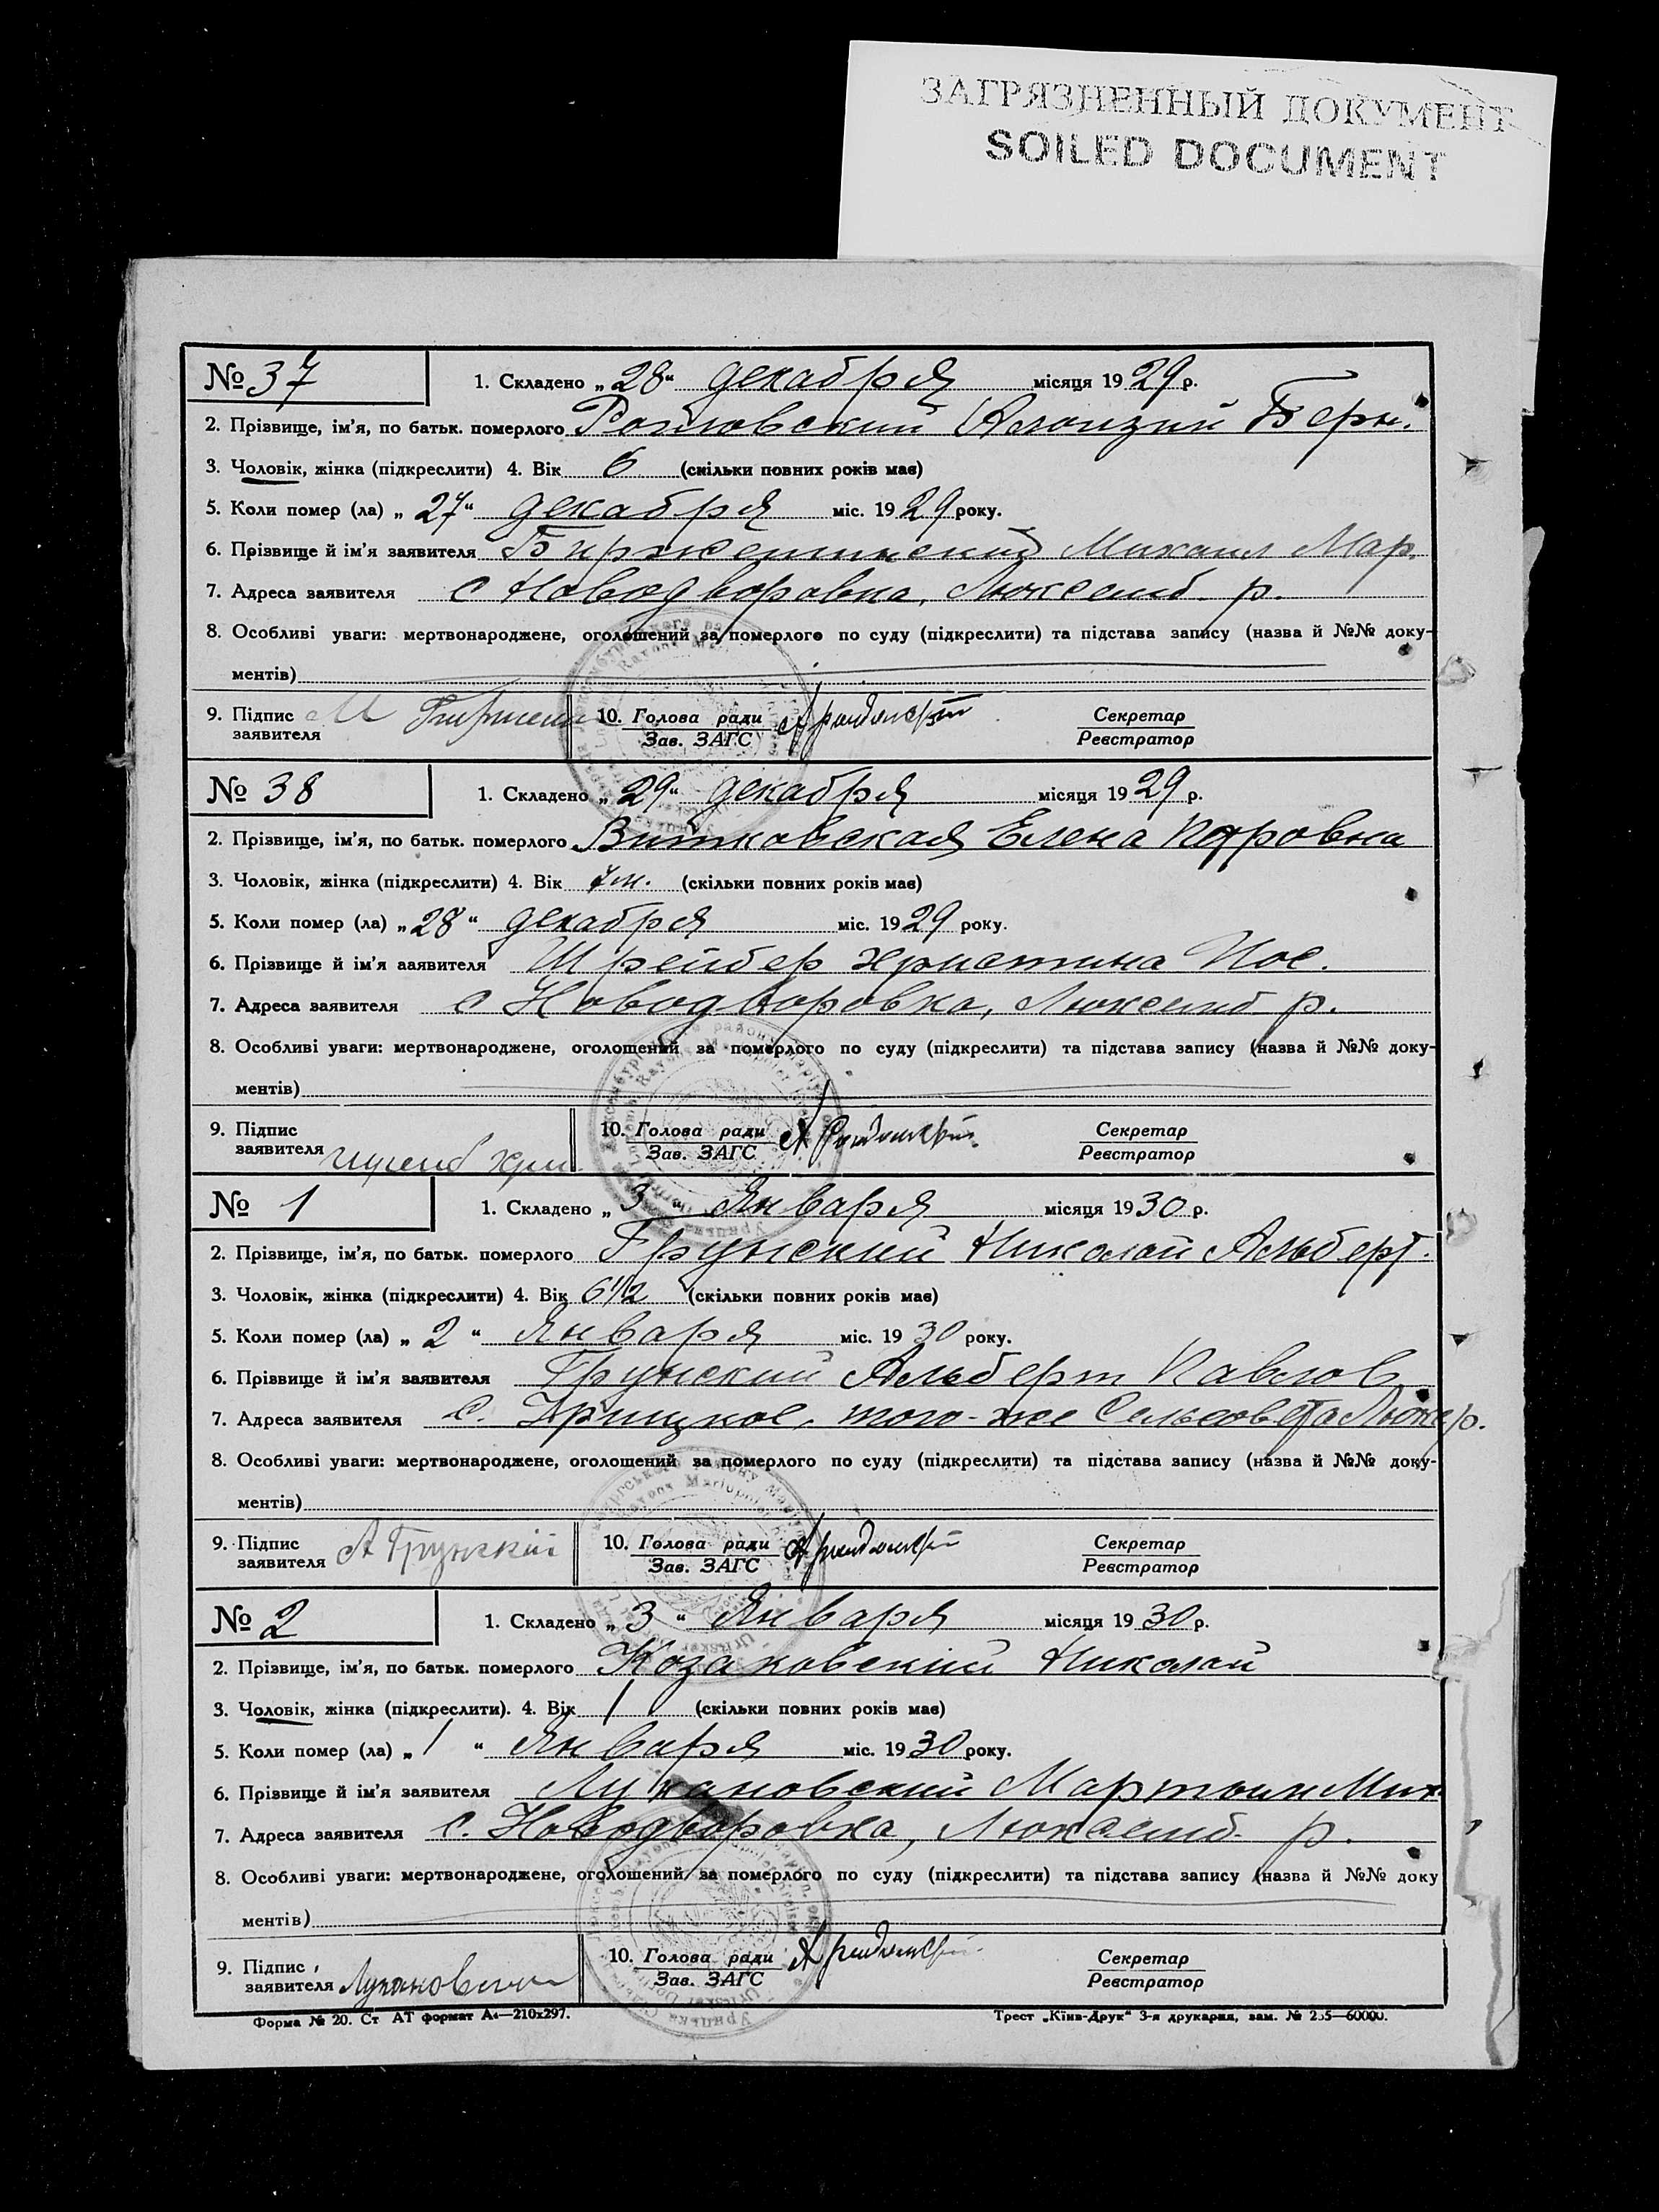 ЗАГРЯЗНЕННЫЙ ДОКУМЕНТ
SOILED DOCUMENT
№ 37 1. Складено „28“ декабря місяця 1929 р.
2. Прізвище, ім'я, по батьк. померлого Алоизий Берн.
3. Чоловік, жінка (підкреслити) 4. Вік 6 (скільки повних років має)
5. Коли помер (ла) „27“ декабря міс. 1929 року.
6. Прізвище й ім'я заявителя Михаил Мар.
7. Адреса заявителя с Новодворовка, Люксемб. р.
8. Особливі уваги: мертвонароджене, оголошений за померлого по суду (підкреслити) та підстава запису (назва й №№ доку-
ментів)
9. Підпис заявителя М 10. Голова ради Зав. ЗАГС Секретар Реєстратор
№ 38 1. Складено „29“ декабря місяця 1929 р.
2. Прізвище, ім'я, по батьк. померлого Витковская Елена Петровна
3. Чоловік, жінка (підкреслити) 4. Вік 7 м. (скільки повних років має)
5. Коли помер (ла) „28“ декабря міс. 1929 року.
6. Прізвище й ім'я заявителя Шрейбер Христина Иос.
7. Адреса заявителя с Новодворовка, Люксемб р.
8. Особливі уваги: мертвонароджене, оголошений за померлого по суду (підкреслити) та підстава запису (назва й №№ доку-
ментів)
9. Підпис заявителя 10. Голова ради Зав. ЗАГС Секретар Реєстратор
№ 1 1. Складено „3“ Января місяця 1930 р.
2. Прізвище, ім'я, по батьк. померлого Грунский Николай Альберт.
3. Чоловік, жінка (підкреслити) 4. Вік 6 1/2 (скільки повних років має)
5. Коли помер (ла) „2“ Января міс. 1930 року.
6. Прізвище й ім'я заявителя Грунский Альберт Павлов
7. Адреса заявителя с. Урицкое, того-же Сельсовета Люкс р.
8. Особливі уваги: мертвонароджене, оголошений за померлого по суду (підкреслити) та підстава запису (назва й №№ доку-
ментів)
9. Підпис заявителя А Грунскій 10. Голова ради Зав. ЗАГС Секретар Реєстратор
№ 2 1. Складено „3“ Января місяця 1930 р.
2. Прізвище, ім'я, по батьк. померлого Козаковский Николай
3. Чоловік, жінка (підкреслити). 4. Вік 1 (скільки повних років має)
5. Коли помер (ла) „1“ Января міс. 1930 року.
6. Прізвище й ім'я заявителя Лукановский Мартын Мих
7. Адреса заявителя с. Новодворовка, Люксемб. р.
8. Особливі уваги: мертвонароджене, оголошений за померлого по суду (підкреслити) та підстава запису (назва й №№ доку
ментів)
9. Підпис заявителя 10. Голова ради Зав. ЗАГС Секретар Реєстратор
Форма № 20. Ст АТ формат А4—210x297. Трест „Київ-Друк“ 3-я друкарня, зам. № 255—60000.